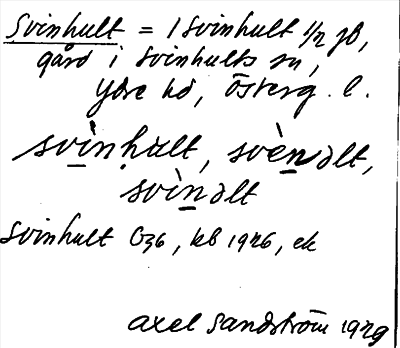 Svinhult = 1 Svinhult 1/2 jb,
gård i Svinhults sn,
Ydre hd, Österg. l.
svìnhult, svènəlt,
svìnəlt
Svinhult G36, kb 1926, ek
Axel Sandström 1929